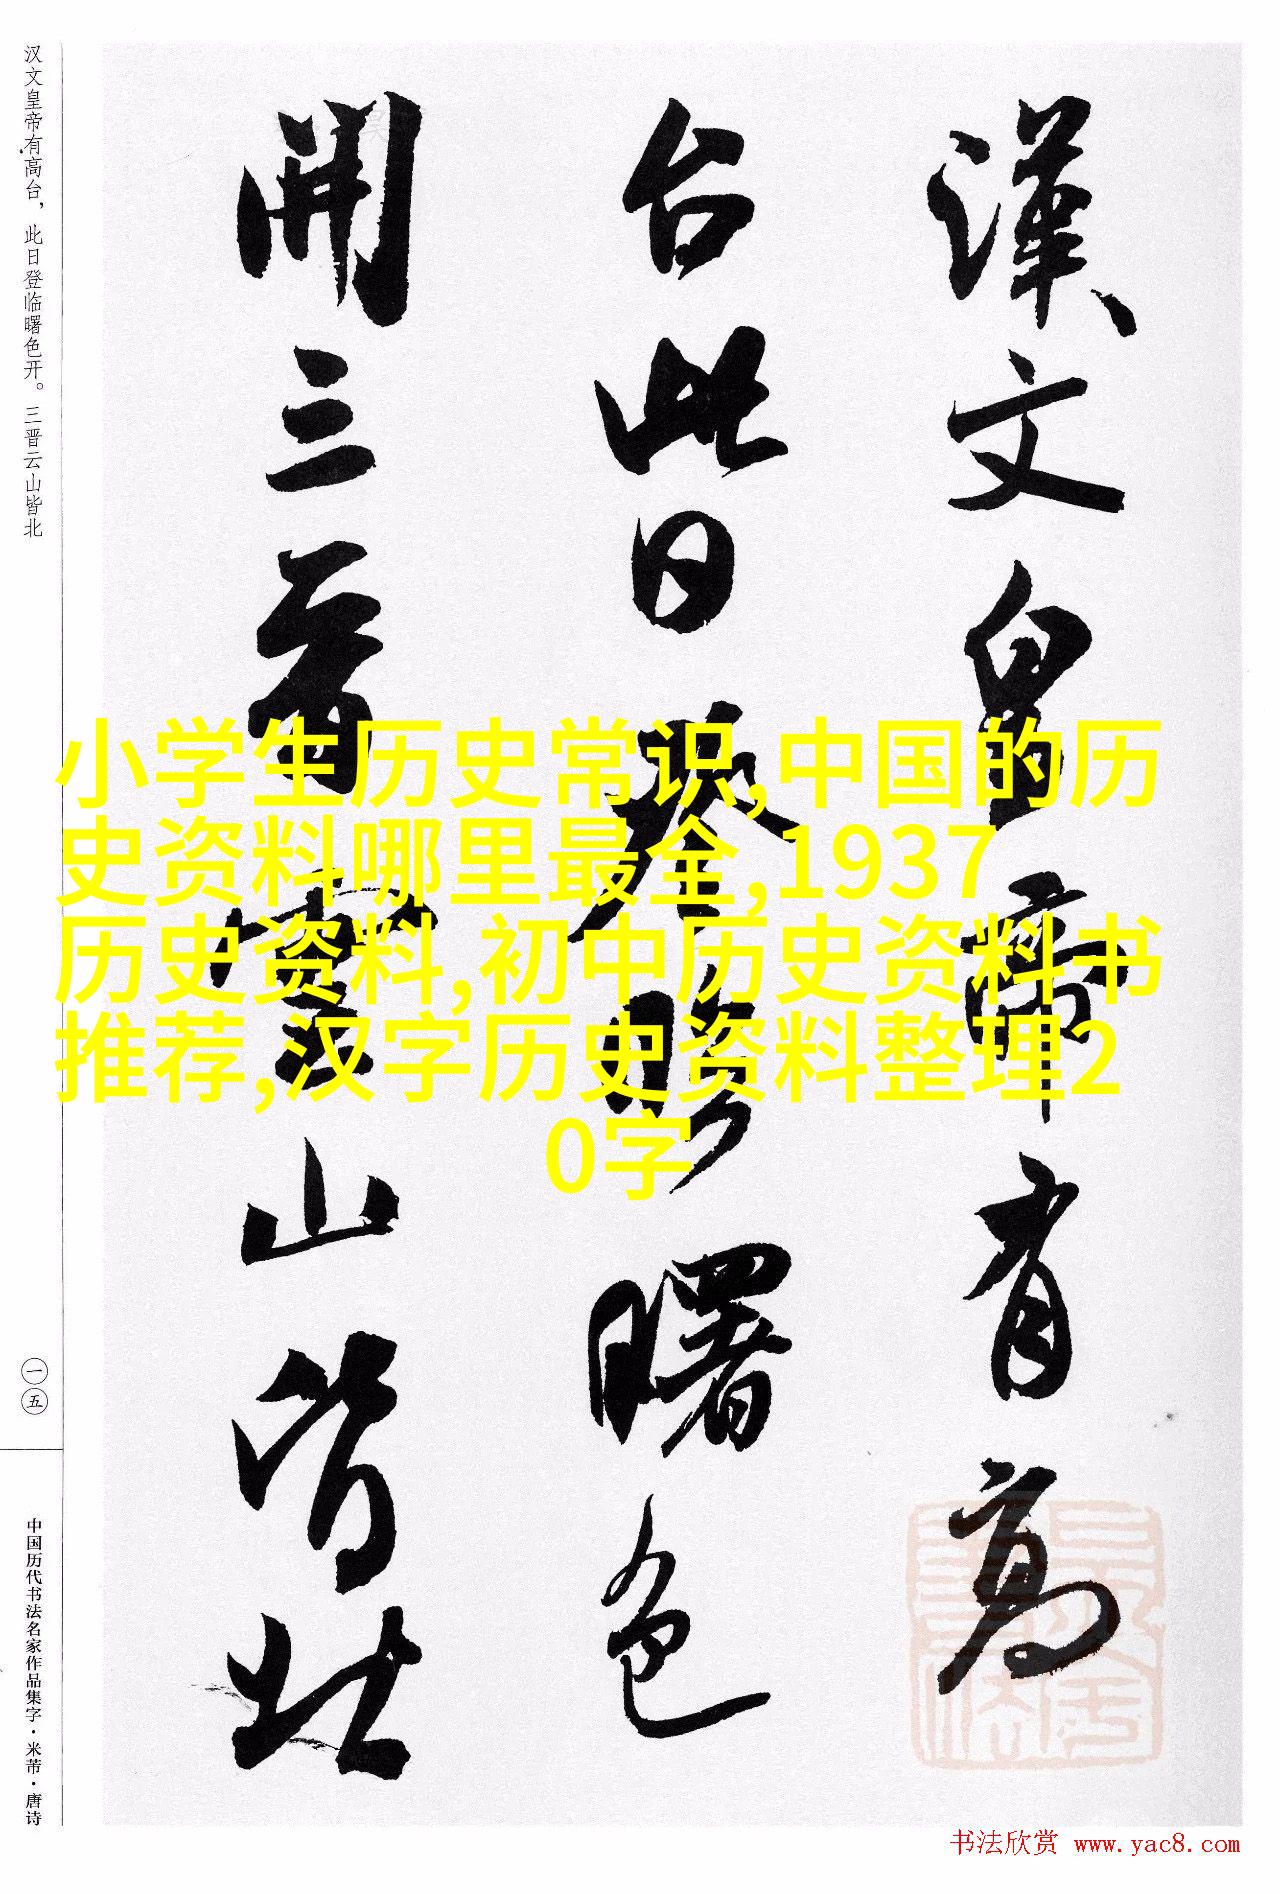 漢文皇帝有高
台此日登臨曙色
開三晉雲山皆北
汉文皇帝有高台，此日登临曙色开。三晋云山皆北
一五
中国历代书法名家作品集字·米芾·唐诗
小学生历史常识,中国的历
史资料哪里最全,1937
历史资料,初中历史资料书
推荐,汉字历史资料整理2
0字
书法欣赏 www.yac8.com